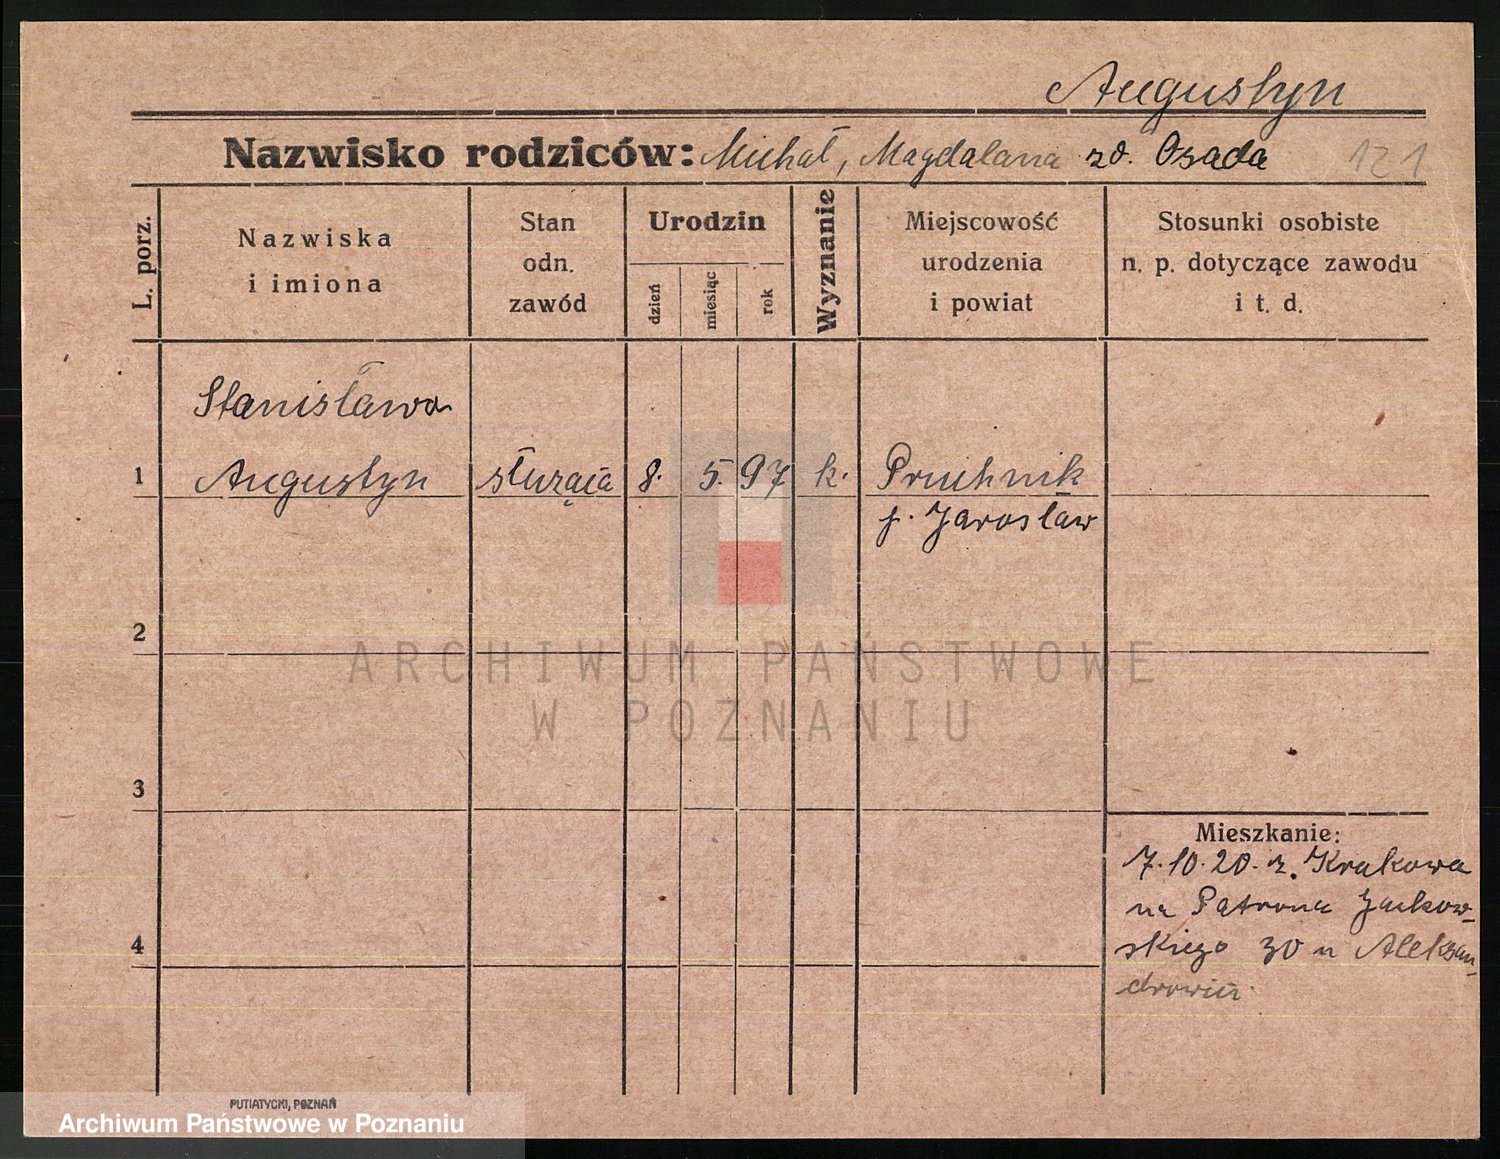 Augustyn
Nazwisko rodziców: Michał, Magdalana zd. Osada 121
L. porz.
Nazwiska i imiona
Stan odn. zawód
Urodzin
dzień
miesiąc
rok
Wyznanie
Miejscowość urodzenia i powiat
Stosunki osobiste n. p. dotyczące zawodu i t. d.
Stanisława
1 Augustyn służąca 8. 5. 97 k. Pruchnik
p. Jarosław
2
ARCHIWUM PAŃSTWOWE
W POZNANIU
3
Mieszkanie:
7.10.20. z. Krakowa
na Patrona Jackow-
4 skiego 30 u Aleksan-
drowicz.
PUTIATYCKI, POZNAŃ
Archiwum Państwowe w Poznaniu